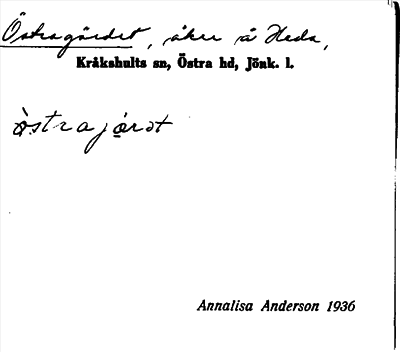 Östragärdet, åker å Heda,
Kråkshults sn, Östra hd, Jönk. l.
òstrajárdt
Annalisa Anderson 1936